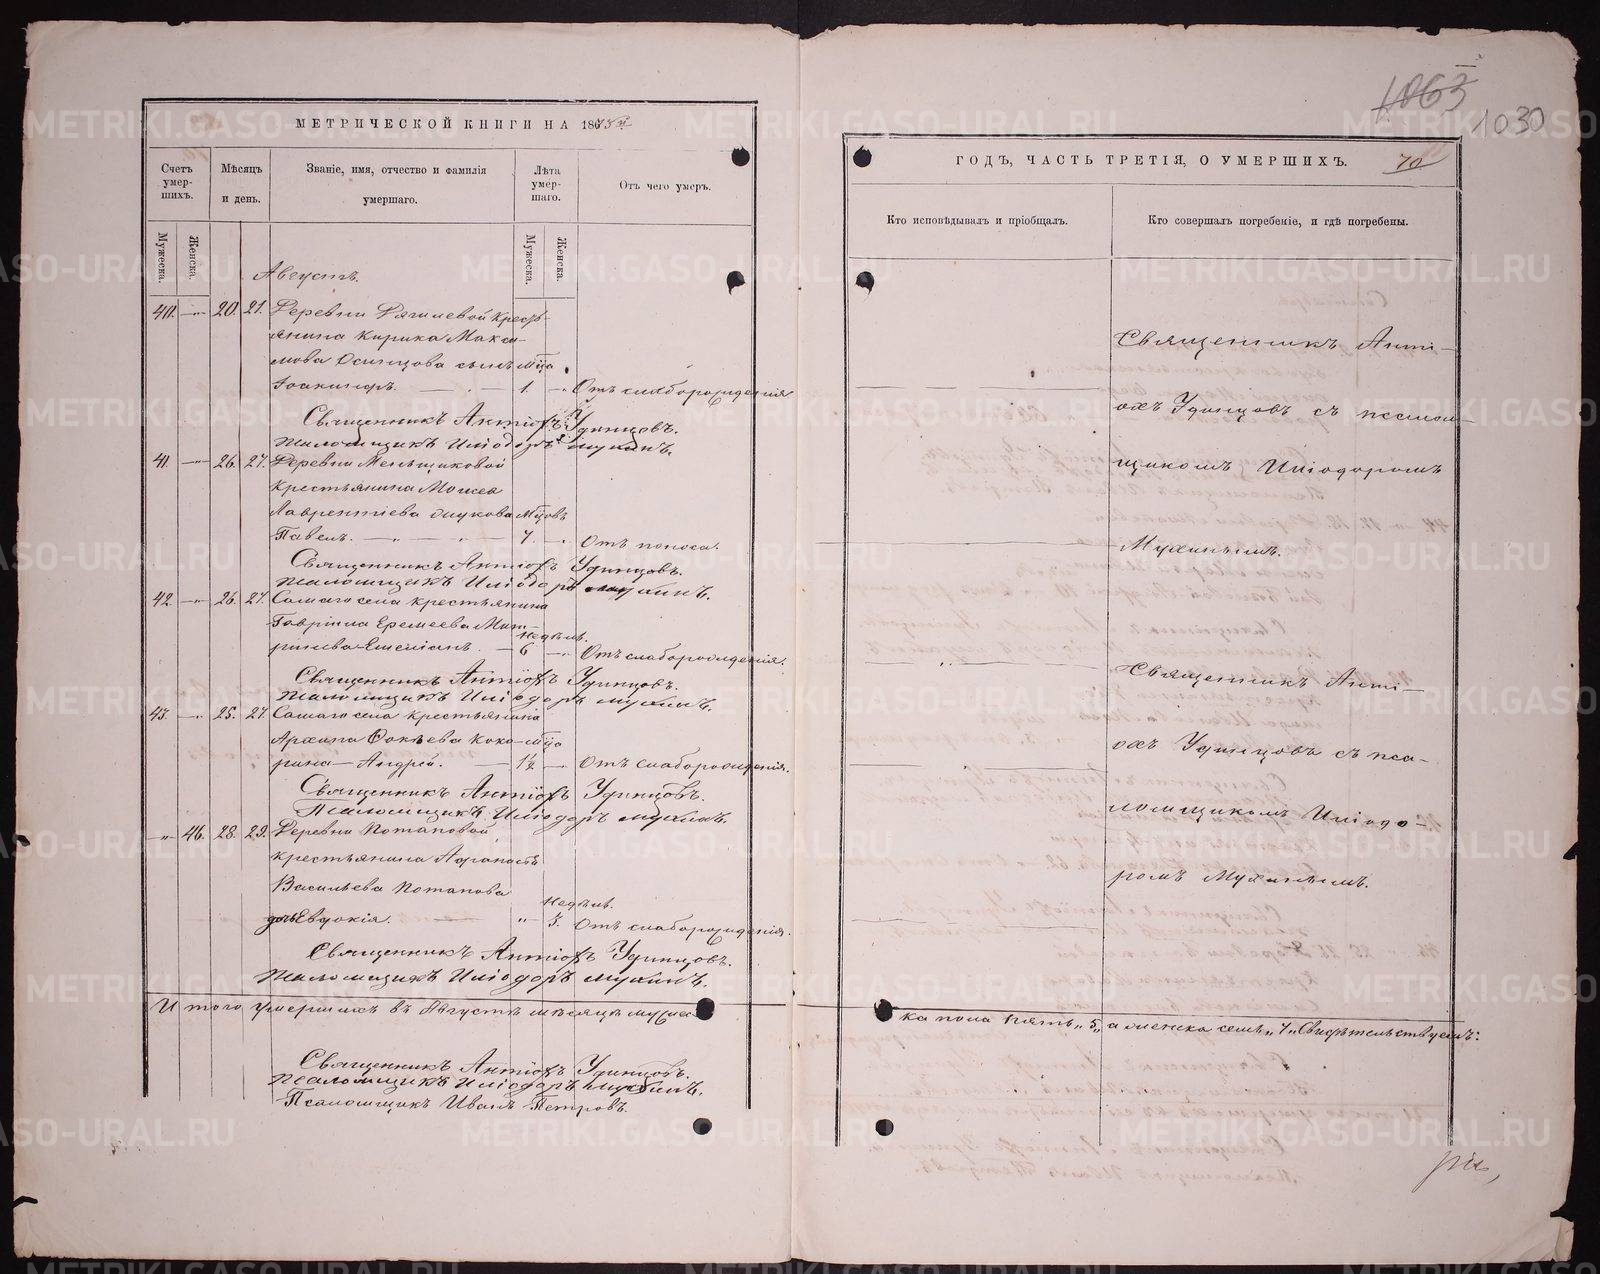 1063
1030
МЕТРИЧЕСКОЙ КНИГИ НА 1875й
ГОДЪ, ЧАСТЬ ТРЕТІЯ, О УМЕРШИХЪ. 70
Счетъ умер-шихъ.
Мѣсяцъ и день.
Званіе, имя, отчество и фамилія умершаго.
Лѣта умер-шаго.
Отъ чего умеръ.
Кто исповѣдывалъ и пріобщалъ.
Кто совершалъ погребеніе, и гдѣ погребены.
Мужеска. Женска.
Мужеска. Женска.
Августъ.
40. 20. 21. Деревни
Кресть-
янина Кирика Макси-
мова Осинцова сынъ м҃ца
Іоакинфъ. 1. Отъ слаборожденія
Священникъ Антіохъ Удинцовъ.
Псаломщикъ Иліодоръ Мухинъ.
41. 26. 27. Деревни Меньщиковой
крестьянина Моисея
Лаврентіева м҃цовъ
Павелъ. 7. Отъ поноса.
Священникъ Антіохъ Удинцовъ.
Псаломщикъ Иліодоръ Мухинъ.
42. 26. 27. Самаго села крестьянина
Гавріила Еремеева
недѣль.
Емеліанъ. 6 Отъ слаборожденія.
Священникъ Антіохъ Удинцовъ.
Псаломщикъ Иліодоръ Мухинъ.
43. 25. 27. Самаго села крестьянина
Архипа Фокѣева Коко- м҃ца
рина Андрей. 1½ Отъ слаборожденія.
Священникъ Антіохъ Удинцовъ.
Псаломщикъ Иліодоръ Мухинъ.
„ 46. 28. 29. Деревни Потаповой
крестьянина
Васильева Потапова недѣль.
дочь Евдокія. „ 3. Отъ слаборожденія.
Священникъ Антіохъ Удинцовъ.
Псаломщикъ Иліодоръ Мухинъ.
Священникъ Анті-
охъ Удинцовъ съ псалом-
щикомъ Иліодоромъ
Мухинымъ.
Священникъ Анті-
охъ Удинцовъ съ пса-
ломщикомъ Иліодо-
ромъ Мухинымъ.
Итого умершихъ въ Августѣ мѣсяцѣ мужес
ка пола пять „5„ а женска семь „7„ Свидѣтельствуемъ:
Священникъ Антіохъ Удинцовъ.
Псаломщикъ Иліодоръ Мухинъ.
Псаломщикъ Иванъ Петровъ.
METRIKI.GASO-URAL.RU